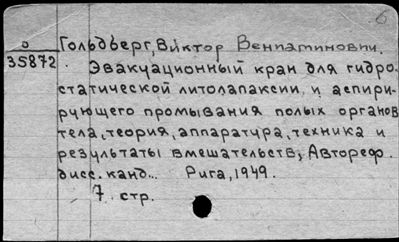 б
о Гольдберг, Виктор Вениаминович.
35872 Эвакуационный кран для гидро-
статической литолапаксии и аспири-
рующего промывания полых органов
тела, теория, аппаратура, техника и
результаты вмешательств, Автореф.
дисс. канд... Рига, 1949.
7. стр.